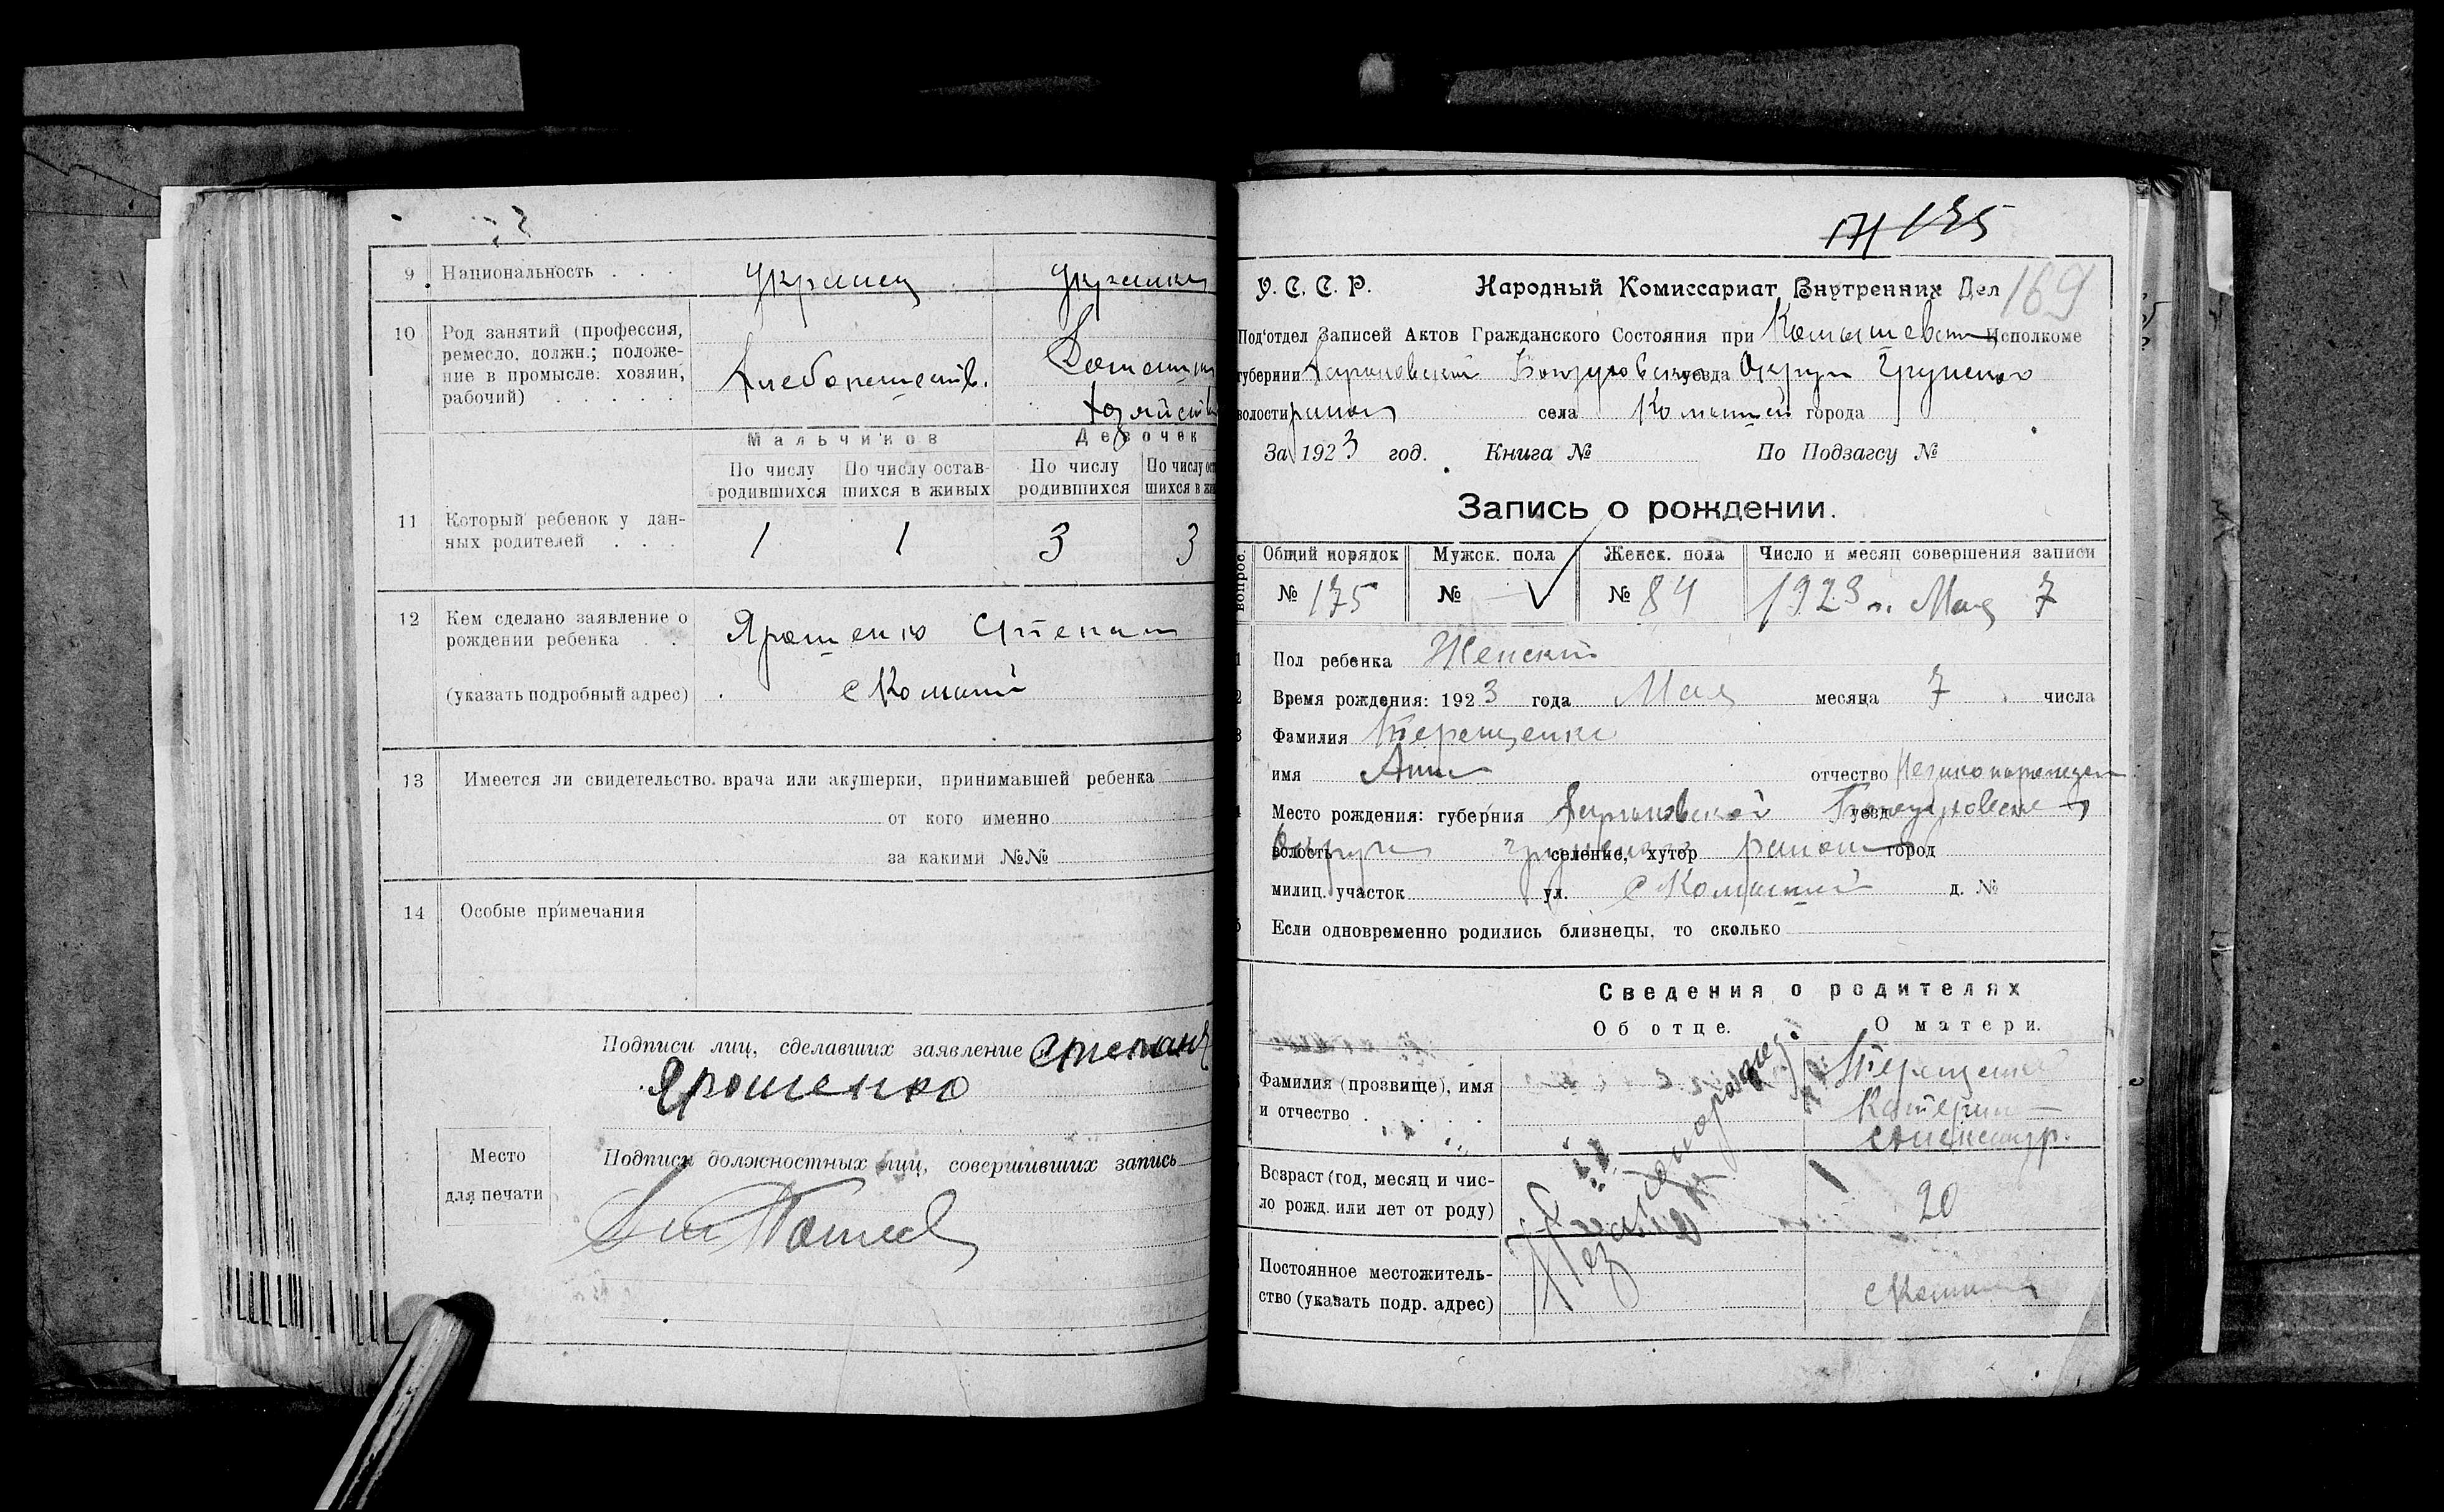 9 Национальность . . . украинец украинка
10 Род занятий (профессия,
ремесло, должн.; положе-
ние в промысле: хозяин,
рабочий) . . . . .
Хлебопашеств.
Домашн
хозяйств
Мальчиков Девочек
По числу родившихся По числу остав-шихся в живых По числу родившихся По числу ост шихся в жи
11 Который ребенок у дан-
ных родителей . . .
1 1 3 3
12 Кем сделано заявление о
рождении ребенка . .
Ярошенко Степан
(указать подробный адрес) с Комыши
13 Имеется ли свидетельство врача или акушерки, принимавшей ребенка
от кого именно
за какими №№
14 Особые примечания
Подписи лиц, сделавших заявление Степан
Ярошенко
Место
для печати
Подписи должностных лиц, совершивших запись
171 175
169
У. С. С. Р. Народный Комиссариат Внутренних Дел
Под'отдел Записей Актов Гражданского Состояния при Комышевском Исполкоме
губернии Харьковской Богодуховского уезда Округа Грунского
волости района села Комыши города
За 1923 год. Книга № По Подзагсу №
Запись о рождении.
вопрос. Общий порядок Мужск. пола Женск. пола Число и месяц совершения записи
№ 175 № V № 84 1923 г. Мая 7
1 Пол ребенка Женский
2 Время рождения: 1923 года Мая месяца 7 числа
3 Фамилия Терещенко
имя Анна отчество Незаконорожден
4 Место рождения: губерния Харьковской уезд Богодуховского
волость Округа селение, хутор Грунского района город
милиц. участок ул. с Комыши д. №
5 Если одновременно родились близнецы, то сколько
Сведения о родителях
Об отце. О матери.
Фамилия (прозвище), имя
и отчество . . . . .
Терещенко
Катерина
Александр.
Незаконорожд.
Возраст (год, месяц и чис-
ло рожд. или лет от роду)
20
Постоянное местожитель-
ство (указать подр. адрес)
с Комыши